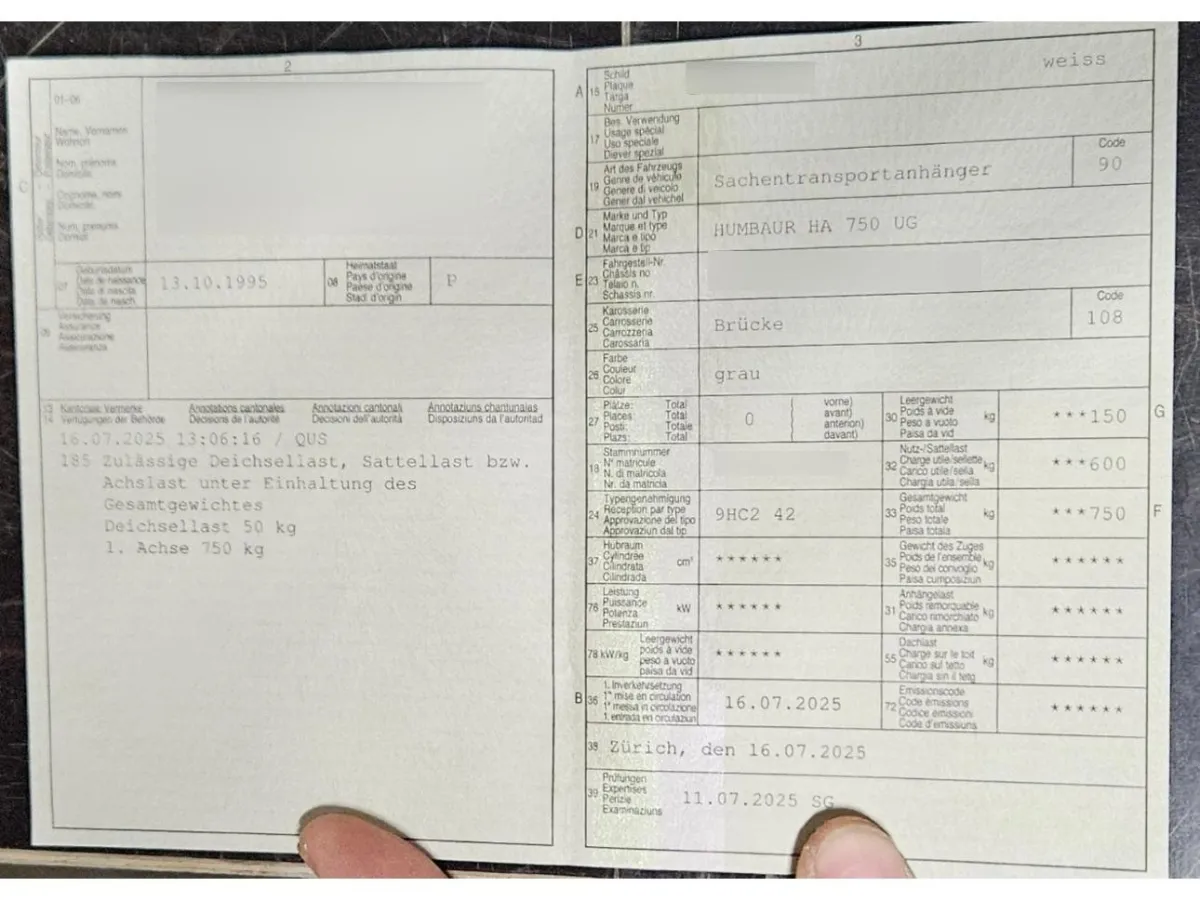 2
01-06
Name, Vornamen
Wohnort
Nom, prénoms
Domicile
Cognome, nomi
Domicilio
Num, prenums
Domicil
C
07
Geburtsdatum
Date de naissance
Data di nascita
Data da nasch.
13.10.1995
08
Heimatstaat
Pays d'origine
Paese d'origine
Stadi d'origin
P
09
Versicherung
Assurance
Assicurazione
13 Kantonale Vermerke Annotations cantonales Annotazioni cantonali Annotaziuns chantunalas
14 Verfügungen der Behörde Décisions de l'autorité Decisioni dell'autorità Disposiziuns da l'autoritad
16.07.2025 13:06:16 / QUS
185 Zulässige Deichsellast, Sattellast bzw.
Achslast unter Einhaltung des
Gesamtgewichtes
Deichsellast 50 kg
1. Achse 750 kg
3
A 15
Schild
Plaque
Targa
Numer
weiss
17
Bes. Verwendung
Usage spécial
Uso speciale
Diever spezial
19
Art des Fahrzeugs
Genre de véhicule
Genere di veicolo
Gener dal vehichel
Sachentransportanhänger
Code
90
D 21
Marke und Typ
Marque et type
Marca e tipo
Marca e tip
HUMBAUR HA 750 UG
E 23
Fahrgestell-Nr.
Châssis no
Telaio n.
Schassis nr.
25
Karosserie
Carrosserie
Carrozzeria
Carossaria
Brücke
Code
108
26
Farbe
Couleur
Colore
Colur
grau
27
Plätze: Total
Places: Total
Posti: Totale
Plazs: Total
0
vorne)
avant)
anteriori)
davant)
30
Leergewicht
Poids à vide
Peso a vuoto
Paisa da vid
kg
***150
G
18
Stammnummer
N° matricule
N. di matricola
Nr. da matricla
32
Nutz-/Sattellast
Charge utile/sellette
Carico utile/sella
Chargia utila/sella
kg
***600
24
Typengenehmigung
Réception par type
Approvazione del tipo
Approvaziun dal tip
9HC2 42
33
Gesamtgewicht
Poids total
Peso totale
Paisa totala
kg
***750
F
37
Hubraum
Cylindrée
Cilindrata
Cilindrada
cm³
******
35
Gewicht des Zuges
Poids de l'ensemble
Peso del convoglio
Paisa cumposiziun
kg
******
76
Leistung
Puissance
Potenza
Prestaziun
kW
******
31
Anhängelast
Poids remorquable
Carico rimorchiato
Chargia annexa
kg
******
78 kW/kg
Leergewicht
poids à vide
peso a vuoto
paisa da vid
******
55
Dachlast
Charge sur le toit
Carico sul tetto
Chargia sin il tetg
kg
******
B 36
1. Inverkehrsetzung
1re mise en circulation
1a messa in circolazione
1. entrada en circulaziun
16.07.2025
72
Emissionscode
Code émissions
Codice emissioni
Code d'emissiuns
******
38 Zürich, den 16.07.2025
39
Prüfungen
Expertises
Perizie
Examinaziuns
11.07.2025 SG